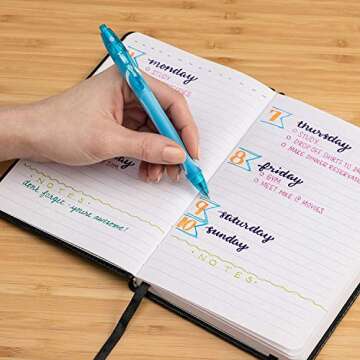 monday
STUDY
NOTES
don't forget - you're awesome!
7 thursday
STUDY
DROP OFF SHIRTS TO
MAKE DINNER RESERVAT
8 friday
GYM
MEET MIKE @ MOVIES
9 saturday
10 sunday
NOTES